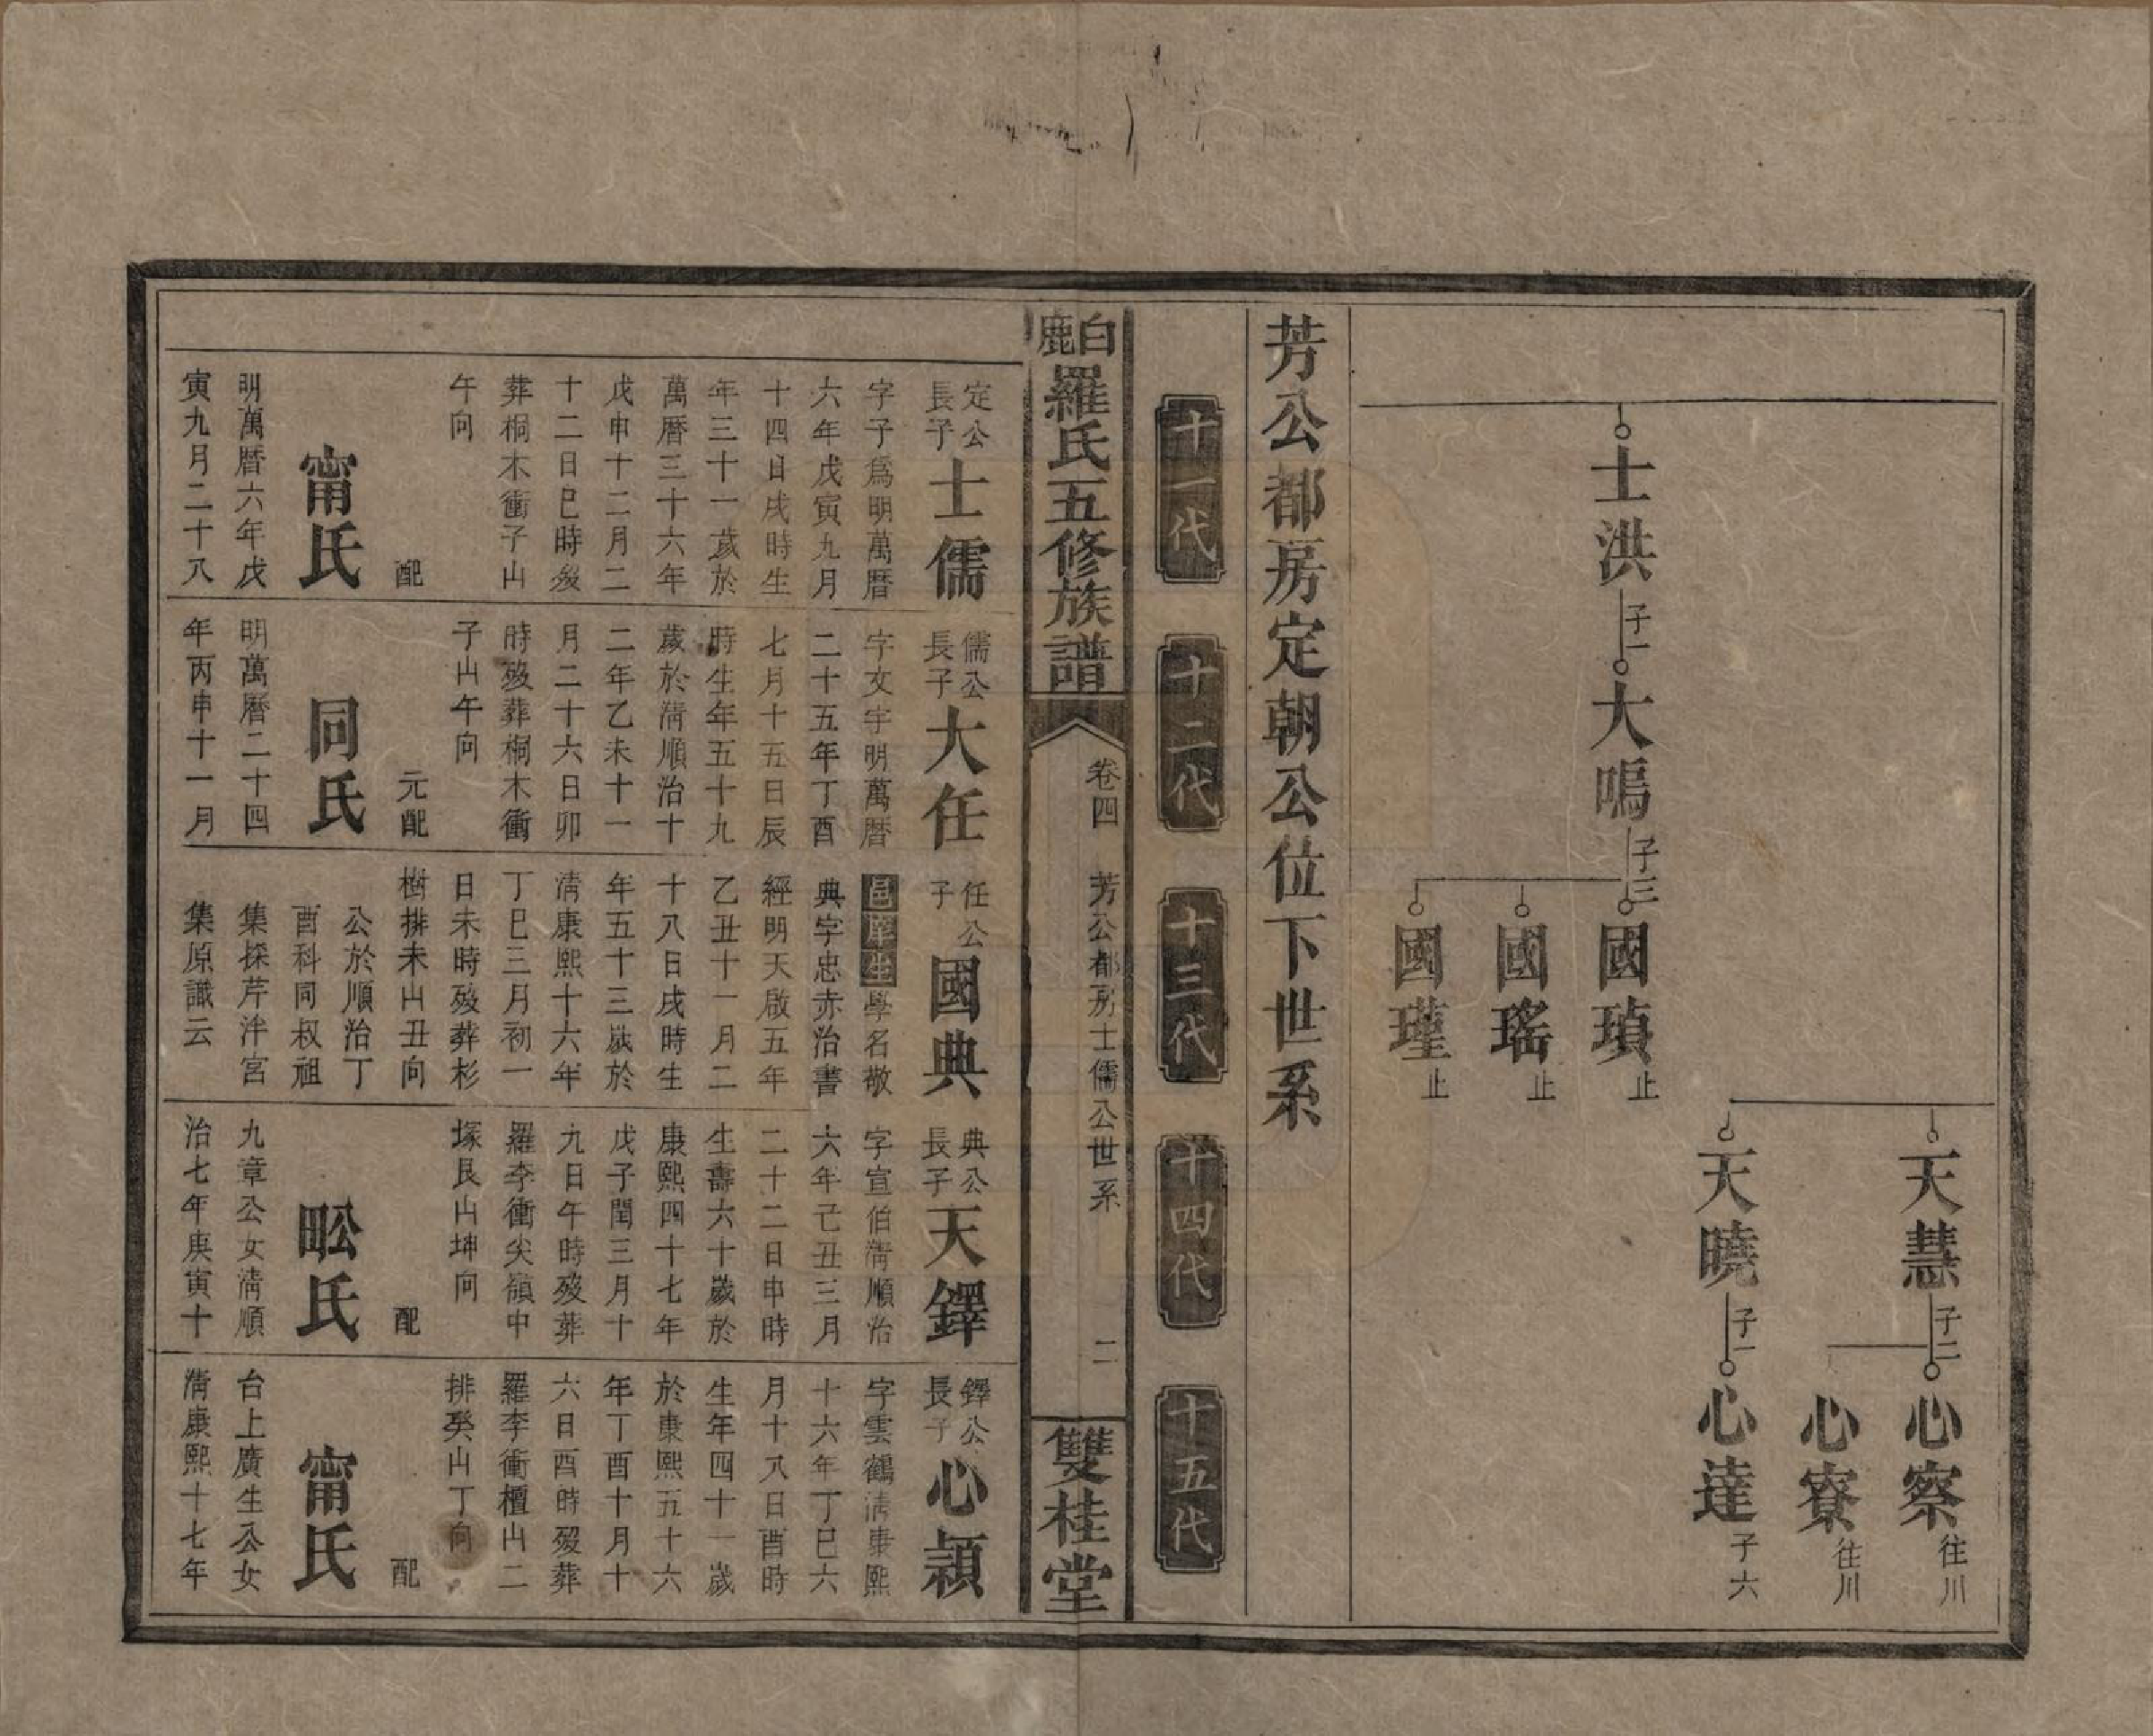 士洪 子一 大嗚 子三 國瑱 止
國瑤 止
國瑾 止
天慧 子二 心察 往川
心寮 往川
天曉 子一 心達 子六
芳公都房定朝公位下世系
十一代
十二代
十三代
十四代
十五代
白鹿羅氏五修族譜
卷四 芳公都房士儒公世系 二
雙桂堂
定公長子 士儒
字子爲明萬曆
六年戊寅九月
十四日戌時生
年三十一歲於
萬曆三十六年
戊申十二月二
十二日巳時歿
葬桐木衝子山
午向
配
甯氏
明萬曆六年戊
寅九月二十八
儒公長子 大任
字文宇明萬曆
二十五年丁酉
七月十五日辰
時生年五十九
歲於清順治十
二年乙未十一
月二十六日卯
時歿葬桐木衝
子山午向
元配
同氏
明萬曆二十四
年丙申十一月
任公子 國典
邑庠生學名敬
典字忠赤治書
經明天啟五年
乙丑十一月二
十八日戌時生
年五十三歲於
清康熙十六年
丁巳三月初一
日未時歿葬杉
樹排未山丑向
公於順治丁
酉科同叔祖
集探芹泮宮
集原識云
典公長子 天鐸
字宣伯清順治
六年己丑三月
二十二日申時
生壽六十歲於
康熙四十七年
戊子閏三月十
九日午時歿葬
羅李衝尖嶺中
塚艮山坤向
配
㕬氏
九章公女清順
治七年庚寅十
鐸公長子 心穎
字雲鶴清康熙
十六年丁巳六
月十八日酉時
生年四十一歲
於康熙五十六
年丁酉十月十
六日酉時歿葬
羅李衝檀山二
排癸山丁向
配
甯氏
台上廣生公女
清康熙十七年